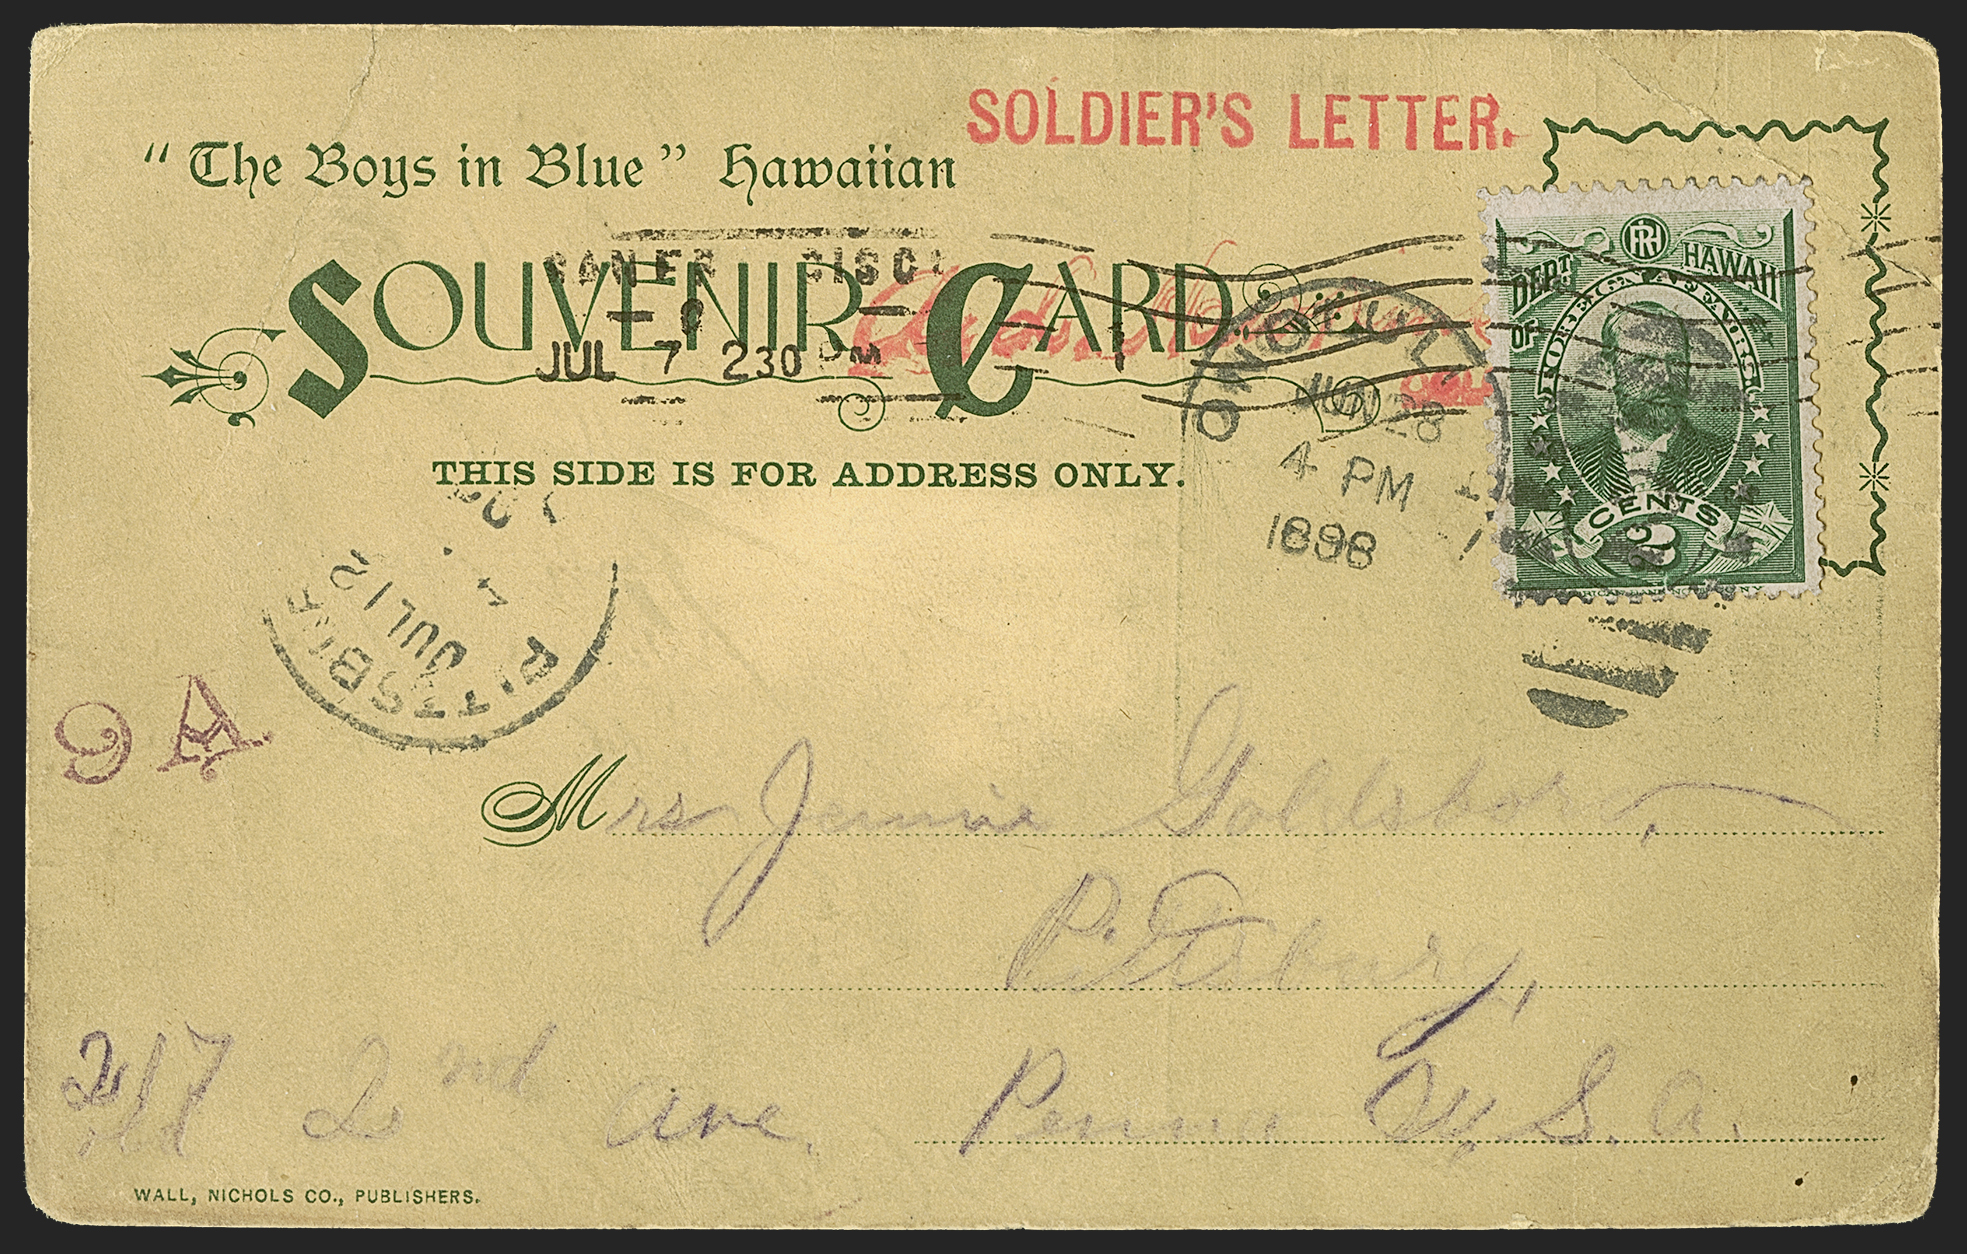 SOLDIER'S LETTER.
"The Boys in Blue" Hawaiian
SOUVENIR CARD
JUL 7 230 PM
THIS SIDE IS FOR ADDRESS ONLY.
HONOLULU
JUN 28
4 PM
1898
DEPT OF FOREIGN AFFAIRS
HAWAII
RH
2 CENTS 2
JUL 12
9 A.
Mrs Jennie Goldsboro,
Pittsburg,
217 2nd ave. Penna U. S. A.
WALL, NICHOLS CO., PUBLISHERS.